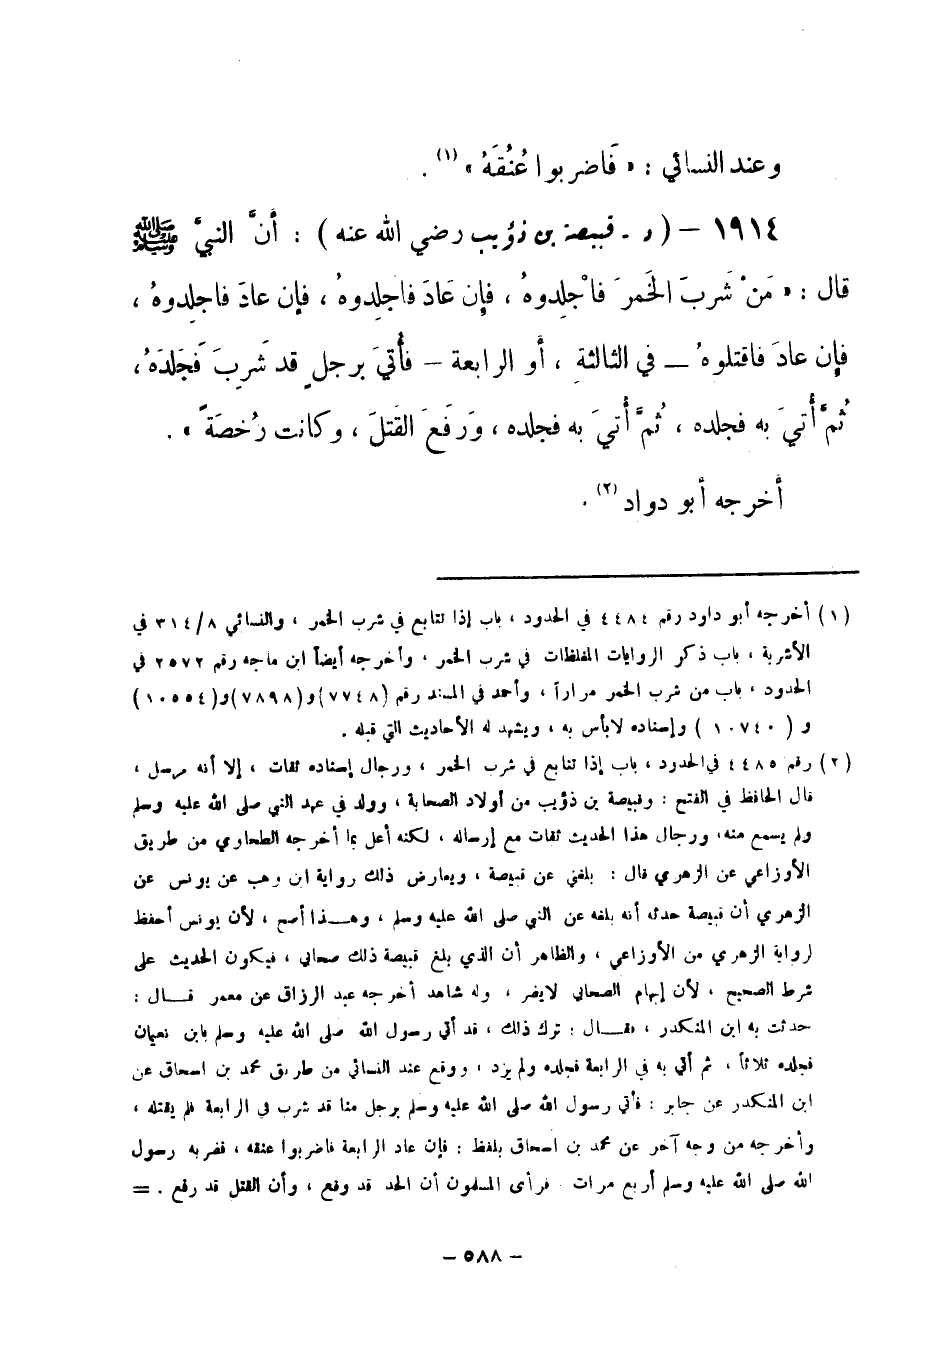 وعند النسائي : « فَاضربوا عُنُقَهُ » (١) .
١٩١٤ – ( د - قبيصة بن ذؤيب رضي الله عنه ) : أنَّ النبيَّ ﷺ
قال : « مَنْ شَربَ الخَمرَ فاجْلِدوهُ ، فإن عَادَ فاجلِدوهُ ، فإن عادَ فاجلِدوهُ ،
فإن عادَ فاقتلوهُ – في الثالثة ، أو الرابعة – فأُتيَ برجلٍ قد شَرِبَ فَجَلَدَهُ ،
ثُمَّ أُتيَ به فجلده ، ثُمَّ أُتيَ به فجلده ، وَرَفَعَ القَتلَ ، وكانت رُخصَةً » .
أخرجه أبو دواد (٢) .
(١) أخرجه أبو داود رقم ٤٤٨٤ في الحدود ، باب إذا تتابع في شرب الخمر ، والنسائي ٣١٤/٨ في
الأشربة ، باب ذكر الروايات المغلظات في شرب الخمر ، وأخرجه أيضاً ابن ماجه رقم ٢٥٧٢ في
الحدود ، باب من شرب الخمر مراراً ، وأحمد في المسند رقم (٧٧٤٨) و(٧٨٩٨) و(١٠٥٥٤)
و ( ١٠٧٤٠ ) وإسناده لابأس به ، ويشهد له الأحاديث التي قبله .
(٢) رقم ٤٤٨٥ في الحدود ، باب إذا تتابع في شرب الخمر ، ورجال إسناده ثقات ، إلا أنه مرسل ،
قال الحافظ في الفتح : وقبيصة بن ذؤيب من أولاد الصحابة ، وولد في عهد النبي صلى الله عليه وسلم
ولم يسمع منه، ورجال هذا الحديث ثقات مع إرساله ، لكنه أعل بما أخرجه الطحاوي من طريق
الأوزاعي عن الزهري قال : بلغني عن قبيصة ، ويعارض ذلك رواية ابن وهب عن يونس عن
الزهري أن قبيصة حدثه أنه بلغه عن النبي صلى الله عليه وسلم ، وهـذا أصح ، لأن يونس أحفظ
لرواية الزهري من الأوزاعي ، والظاهر أن الذي بلغ قبيصة ذلك صحابي ، فيكون الحديث على
شرط الصحيح ، لأن إبهام الصحابي لايضر ، وله شاهد أخرجه عبد الرزاق عن معمر قـال :
حدثت به ابن المنكدر ، فقـال : ترك ذلك ، قد أتي رسول الله صلى الله عليه وسلم بابن نعيمان
فجلده ثلاثاً ، ثم أتي به في الرابعة فجلده ولم يزد ، ووقع عند النسائي من طريق محمد بن اسحاق عن
ابن المنكدر عن جابر : فأتي رسول الله صلى الله عليه وسلم برجل منا قد شرب في الرابعة فلم يقتله ،
وأخرجه من وجه آخر عن محمد بن اسحاق بلفظ : فإن عاد الرابعة فاضربوا عنقه ، فضربه رسول
الله صلى الله عليه وسلم أربع مرات فرأى المسلمون أن الحد قد وقع ، وأن القتل قد رفع . =
– ٥٨٨ –